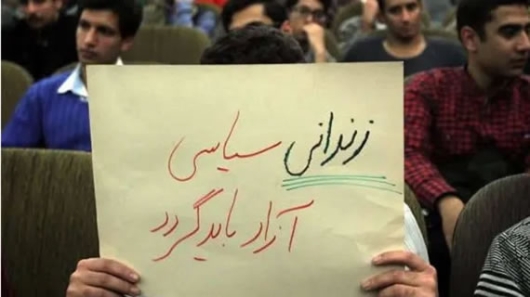 زندانی سیاسی
آزاد باید گردد